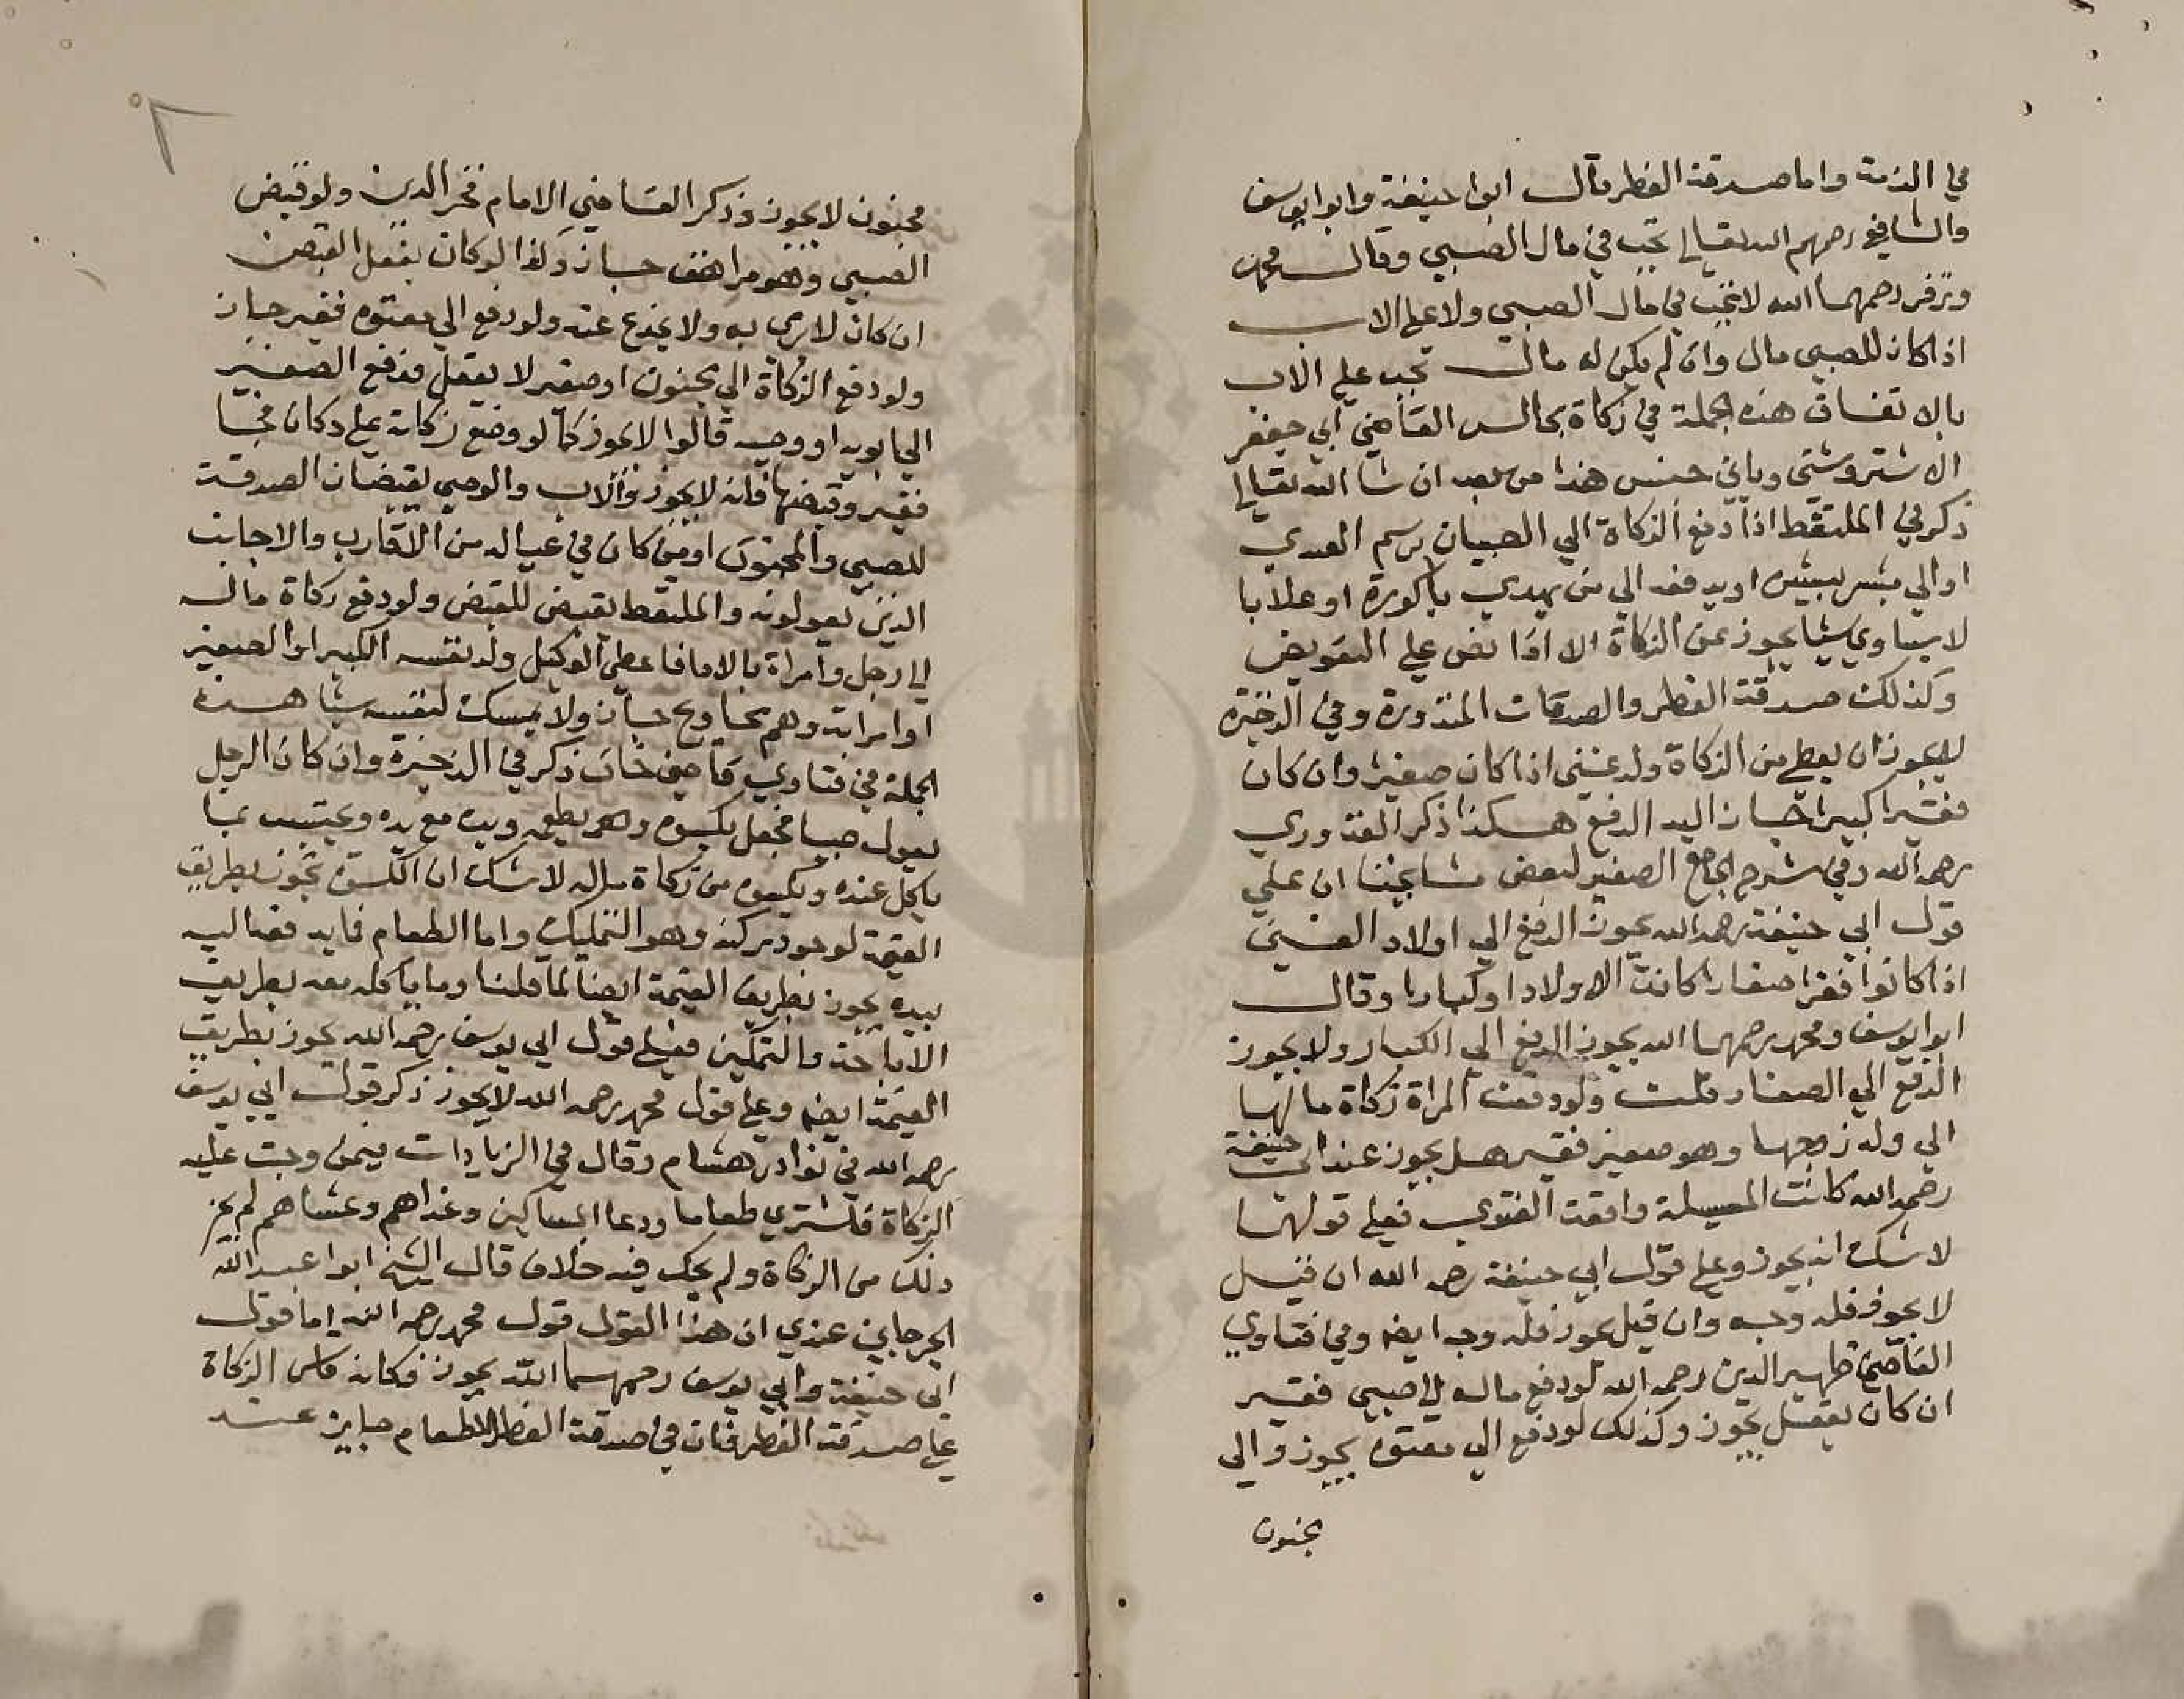 في الذمة واما صدقة الفطر قال ابوا حنيفة وابوا يوسف
والشافعي رحمهم الله تعالي تجب في مال الصبي وقال محمد
وزفر رحمهما الله لا تجب في مال الصبي ولا علي الاب
اذا كان للصبي مال وان لم يكن له مال تجب علي الاب
بالاتفاق هذه الجملة في زكاة مجالس القاضي ابي جعفر
الاشتروشني وياتي جنس هذا من بعد ان شا الله تعالي
ذكر في الملتقط اذا دفع الزكاة الي الصبيان برسم العيدي
او الي مبشر يبشره او يدفعه الي من يهدي باكورة او علابا
لا يساوي شيا يجوز عن الزكاة الا اذا نص علي التعويض
وكذلك صدقة الفطر والصدقات المنذورة وفي الدخيرة
لا يجوز ان يعطي من الزكاة ولد غني اذا كان صغيرا وان كان
فقيرا كبيرا جاز اليه الدفع هكذا ذكر القدوري
رحمه الله وفي شرح الجامع الصغير لبعض مشايخنا ان علي
قول ابي حنيفة رحمه الله يجوز الدفع الي اولاد الغني
اذا كانوا فقرا صغارا كانت الاولاد او كبارا وقال
ابوا يوسف ومحمد رحمهما الله يجوز الدفع الي الكبار ولا يجوز
الدفع الي الصغار قلت ولو دفعت المراة زكاة مالها
الي ولد زوجها وهو صغير فقير هل يجوز عند ابي حنيفة
رحمه الله كانت المسيلة واقعة الفتوي فعلي قولهما
لا شك انه يجوز وعلي قول ابي حنيفة رحمه الله ان قيل
لا يجوز فله وجه وان قيل يجوز فله وجه ايضا وفي فتاوي
القاضي ظهير الدين رحمه الله لو دفع ماله الي صبي فقير
ان كان يعقل يجوز وكذلك لو دفع الي معتوه يجوز والي
مجنون
مجنون لا يجوز وذكر القاضي الامام فخر الدين ولو قبض
الصبي وهو مراهق جاز وكذا لو كان يعقل القبض
ان كان لا يرمي به ولا يخدع عنه ولو دفع الي معتوه فقير جاز
ولو دفع الزكاة الي مجنون او صغير لا يعقل فدفع الصغير
الي ابويه او وصيه قالوا لا يجوز كما لو وضع زكاته علي دكان فجا
فقير وقبضها فانه لا يجوز والاب والوصي يقبضان الصدقة
للصبي والمجنون او من كان في عياله من الاقارب والاجانب
الذين يعولونه والملتقط يقبض للقبض ولو دفع زكاة ماله
الي رجل وامراة بالاما فاعطي الوكيل ولد نفسه الكبير او الصغير
او امراته وهم محاويج جاز ولا يمسك لنفسه شيا هذه
الجملة في فتاوي قاضي خان ذكر في الدخيرة وان كان الرجل
يعول صبيا فجعل يكسوه وهو يطعمه ويده مع يده ويحتسب بما
ياكل عنده ويكسوه من زكاة ماله لا شك ان الكسوة تجوز بطريق
القيمة لوجود ركنه وهو التمليك واما الطعام فما يدفعه اليه
بيده يجوز بطريق القيمة ايضا لما قلنا وما ياكله معه بطريق
الاباحة والتمكين فعلي قول ابي يوسف رحمه الله يجوز بطريق
القيمة ايضا وعلي قول محمد رحمه الله لا يجوز ذكر قول ابي يوسف
رحمه الله في نوادر هشام وقال في الزيادات فيمن وجبت عليه
الزكاة فاشتري طعاما ودعا المساكين وغداهم وعشاهم لم يجز
ذلك من الزكاة ولم يحك فيه خلاف قال الشيخ ابوا عبد الله
الجرجاني عندي ان هذا القول قول محمد رحمه الله اما قول
ابي حنيفة وابي يوسف رحمهما الله يجوز فكانه قاس الزكاة
علي صدقة الفطر فان في صدقة الفطر الاطعام جايز عند